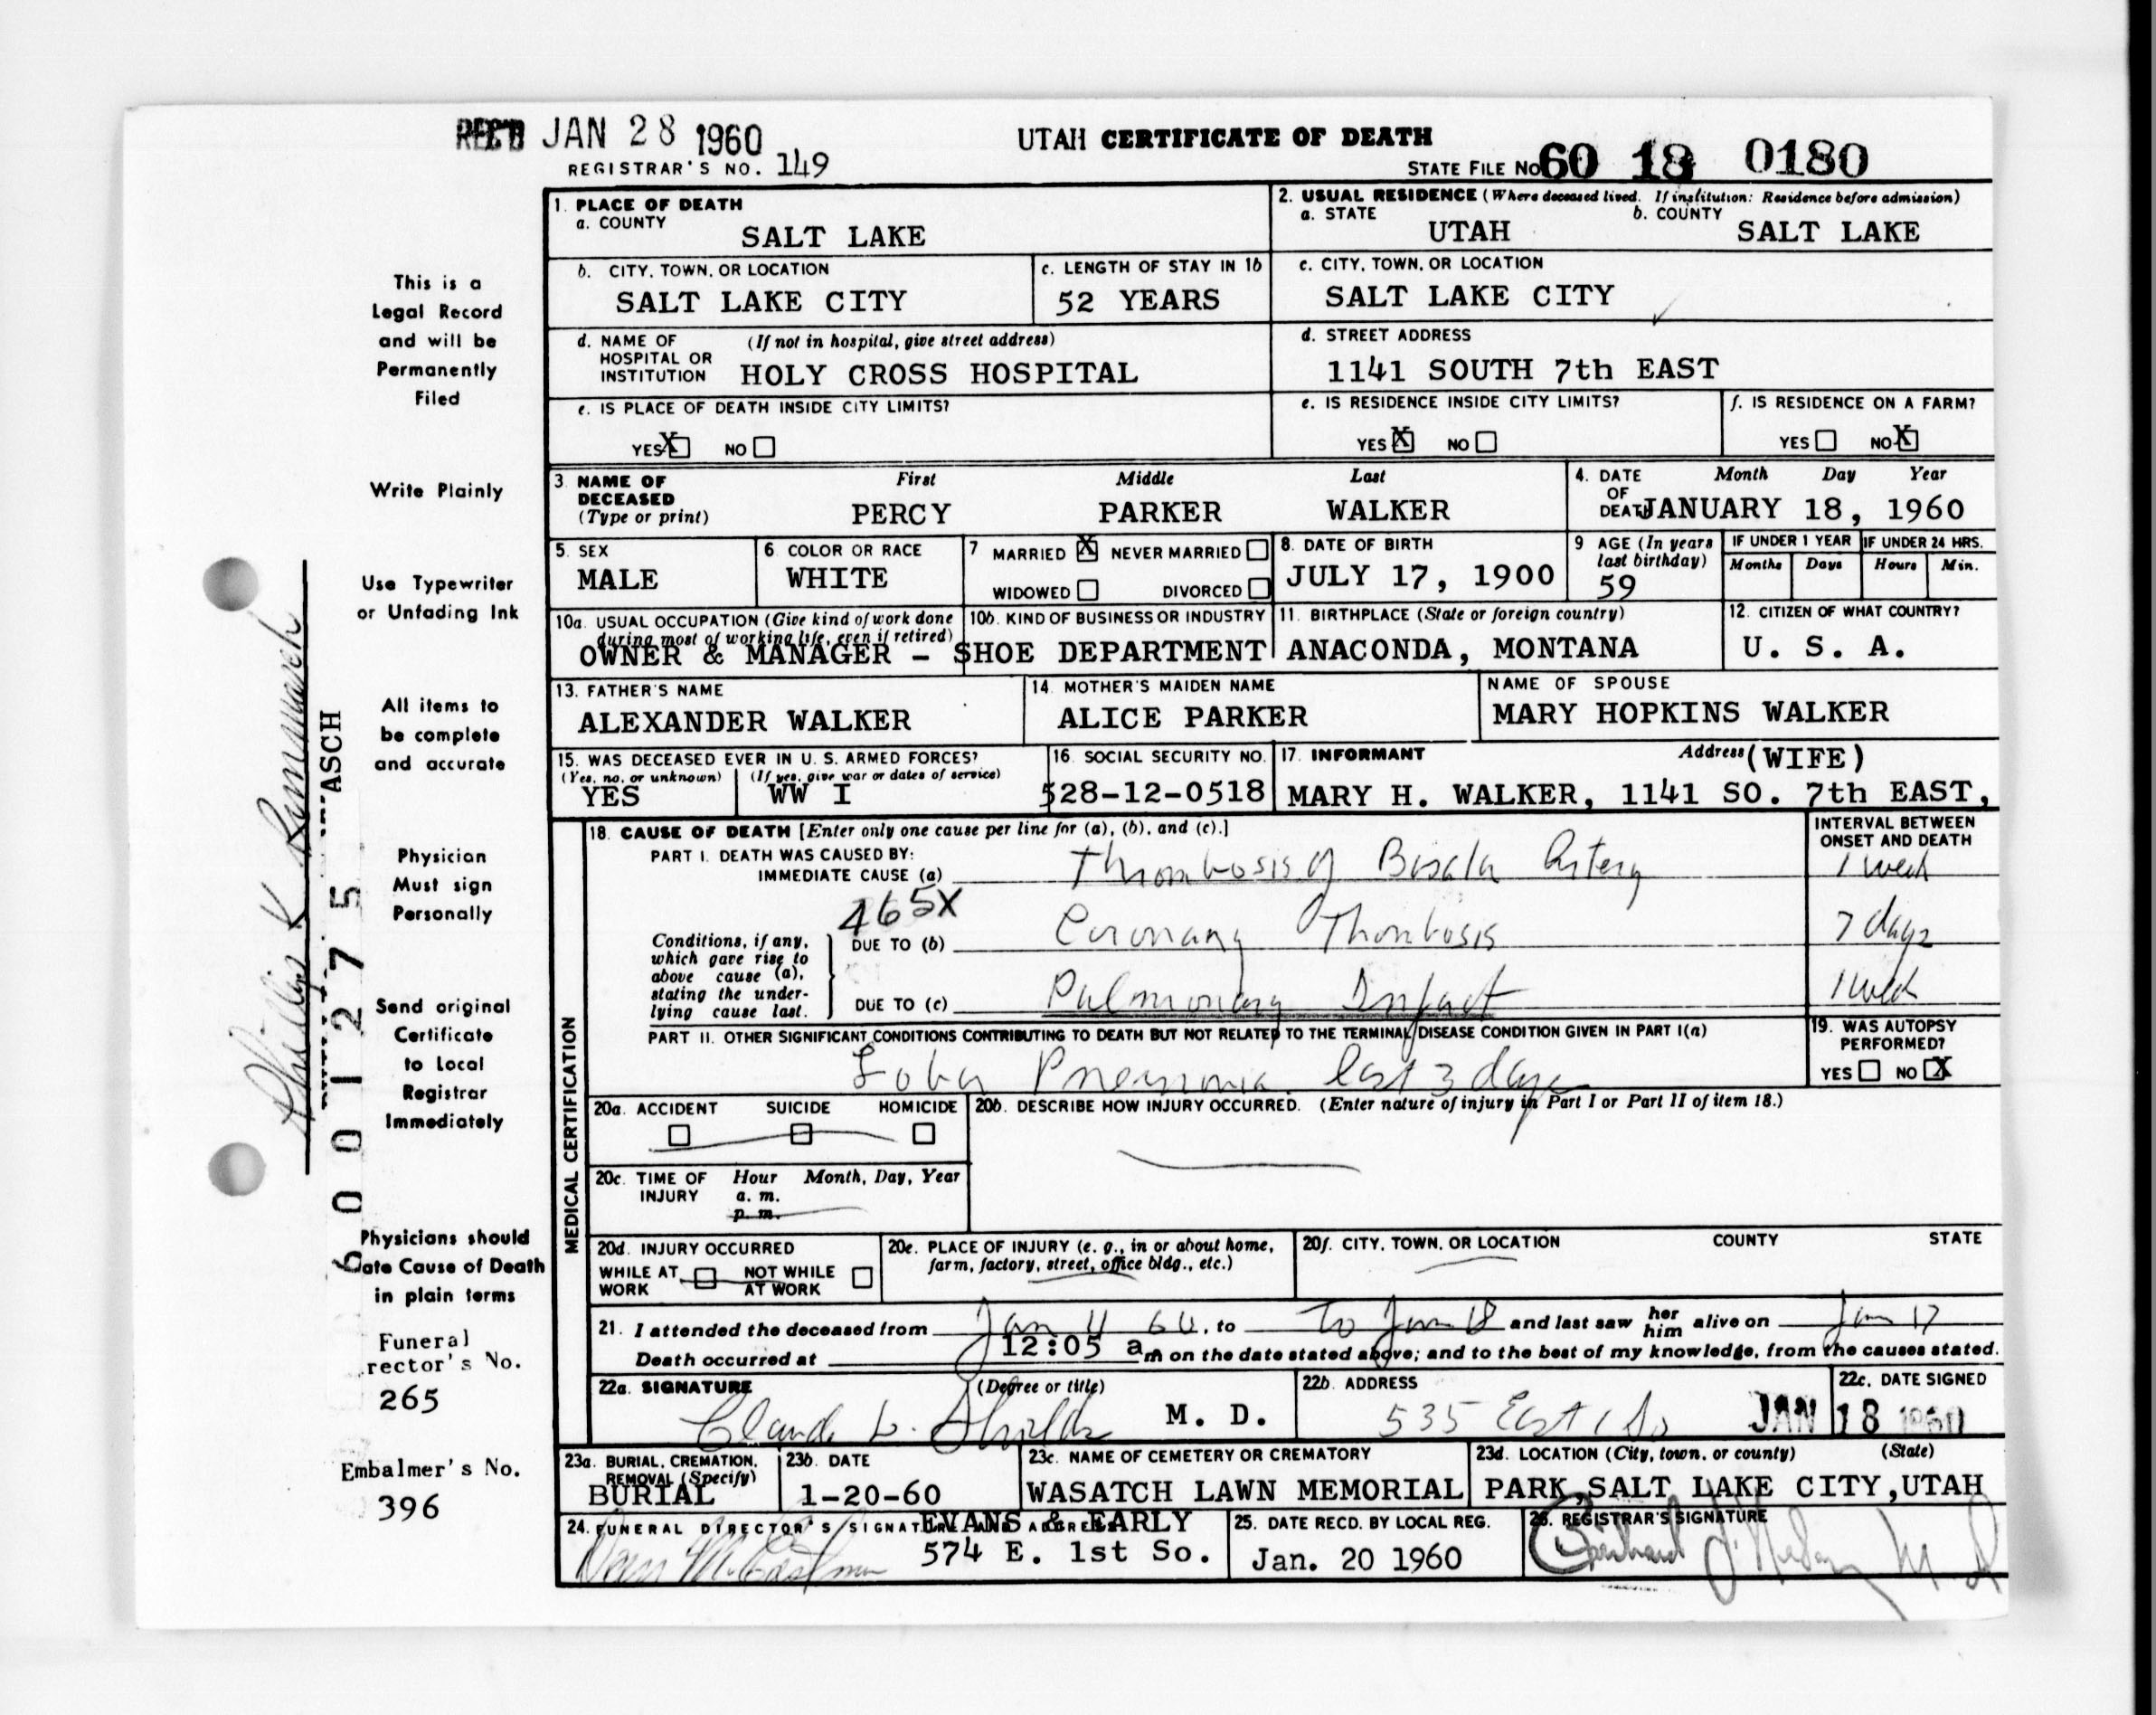 REC'D JAN 28 1960
REGISTRAR'S NO. 149
UTAH CERTIFICATE OF DEATH
STATE FILE NO 60 18 0180
This is a
Legal Record
and will be
Permanently
Filed
Write Plainly
Use Typewriter
or Unfading Ink
All items to
be complete
and accurate
Physician
Must sign
Personally
Send original
Certificate
to Local
Registrar
Immediately
Physicians should
ate Cause of Death
in plain terms
Funeral
rector's No.
265
Embalmer's No.
396
Phillip K
ASCH
6001275
1. PLACE OF DEATH
a. COUNTY
SALT LAKE
2. USUAL RESIDENCE (Where deceased lived. If institution: Residence before admission)
a. STATE UTAH b. COUNTY SALT LAKE
b. CITY, TOWN, OR LOCATION
SALT LAKE CITY
c. LENGTH OF STAY IN 1b
52 YEARS
c. CITY, TOWN, OR LOCATION
SALT LAKE CITY
d. NAME OF HOSPITAL OR INSTITUTION (If not in hospital, give street address)
HOLY CROSS HOSPITAL
d. STREET ADDRESS
1141 SOUTH 7th EAST
e. IS PLACE OF DEATH INSIDE CITY LIMITS?
YES X NO
e. IS RESIDENCE INSIDE CITY LIMITS?
YES X NO
f. IS RESIDENCE ON A FARM?
YES NO X
3. NAME OF DECEASED (Type or print)
First Middle Last
PERCY PARKER WALKER
4. DATE OF DEATH Month Day Year
JANUARY 18, 1960
5. SEX
MALE
6. COLOR OR RACE
WHITE
7 MARRIED X NEVER MARRIED
WIDOWED DIVORCED
8. DATE OF BIRTH
JULY 17, 1900
9 AGE (In years last birthday)
59
IF UNDER 1 YEAR IF UNDER 24 HRS.
Months Days Hours Min.
10a. USUAL OCCUPATION (Give kind of work done during most of working life, even if retired)
10b. KIND OF BUSINESS OR INDUSTRY
OWNER & MANAGER - SHOE DEPARTMENT
11. BIRTHPLACE (State or foreign country)
ANACONDA, MONTANA
12. CITIZEN OF WHAT COUNTRY?
U. S. A.
13. FATHER'S NAME
ALEXANDER WALKER
14. MOTHER'S MAIDEN NAME
ALICE PARKER
NAME OF SPOUSE
MARY HOPKINS WALKER
15. WAS DECEASED EVER IN U. S. ARMED FORCES?
(Yes, no, or unknown) (If yes, give war or dates of service)
YES WW I
16. SOCIAL SECURITY NO.
528-12-0518
17. INFORMANT Address (WIFE)
MARY H. WALKER, 1141 SO. 7th EAST,
MEDICAL CERTIFICATION
18. CAUSE OF DEATH [Enter only one cause per line for (a), (b), and (c).]
INTERVAL BETWEEN ONSET AND DEATH
PART I. DEATH WAS CAUSED BY:
IMMEDIATE CAUSE (a) Thrombosis of Artery 1 week
465X
Conditions, if any, which gave rise to above cause (a), stating the underlying cause last.
DUE TO (b) Coronary Thombosis 7 days
DUE TO (c) Pulmonary Infact 1 week
PART II. OTHER SIGNIFICANT CONDITIONS CONTRIBUTING TO DEATH BUT NOT RELATED TO THE TERMINAL DISEASE CONDITION GIVEN IN PART I(a)
Lobar Pneumonia last 3 days
19. WAS AUTOPSY PERFORMED?
YES NO X
20a. ACCIDENT SUICIDE HOMICIDE
20b. DESCRIBE HOW INJURY OCCURRED. (Enter nature of injury in Part I or Part II of item 18.)
20c. TIME OF INJURY Hour Month, Day, Year
a. m.
p. m.
20d. INJURY OCCURRED
WHILE AT WORK NOT WHILE AT WORK
20e. PLACE OF INJURY (e. g., in or about home, farm, factory, street, office bldg., etc.)
20f. CITY, TOWN, OR LOCATION COUNTY STATE
21. I attended the deceased from Jan 11 60, to To Jan 18 and last saw her him alive on Jan 17
Death occurred at 12:05 am on the date stated above; and to the best of my knowledge, from the causes stated.
22a. SIGNATURE (Degree or title)
Claude L. Shields M. D.
22b. ADDRESS
535 East 1 So
22c. DATE SIGNED
JAN 18 1960
23a. BURIAL, CREMATION, REMOVAL (Specify)
BURIAL
23b. DATE
1-20-60
23c. NAME OF CEMETERY OR CREMATORY
23d. LOCATION (City, town, or county) (State)
WASATCH LAWN MEMORIAL PARK, SALT LAKE CITY, UTAH
24. FUNERAL DIRECTOR'S SIGNATURE AND ADDRESS
EVANS & EARLY
574 E. 1st So.
25. DATE RECD. BY LOCAL REG.
Jan. 20 1960
26. REGISTRAR'S SIGNATURE